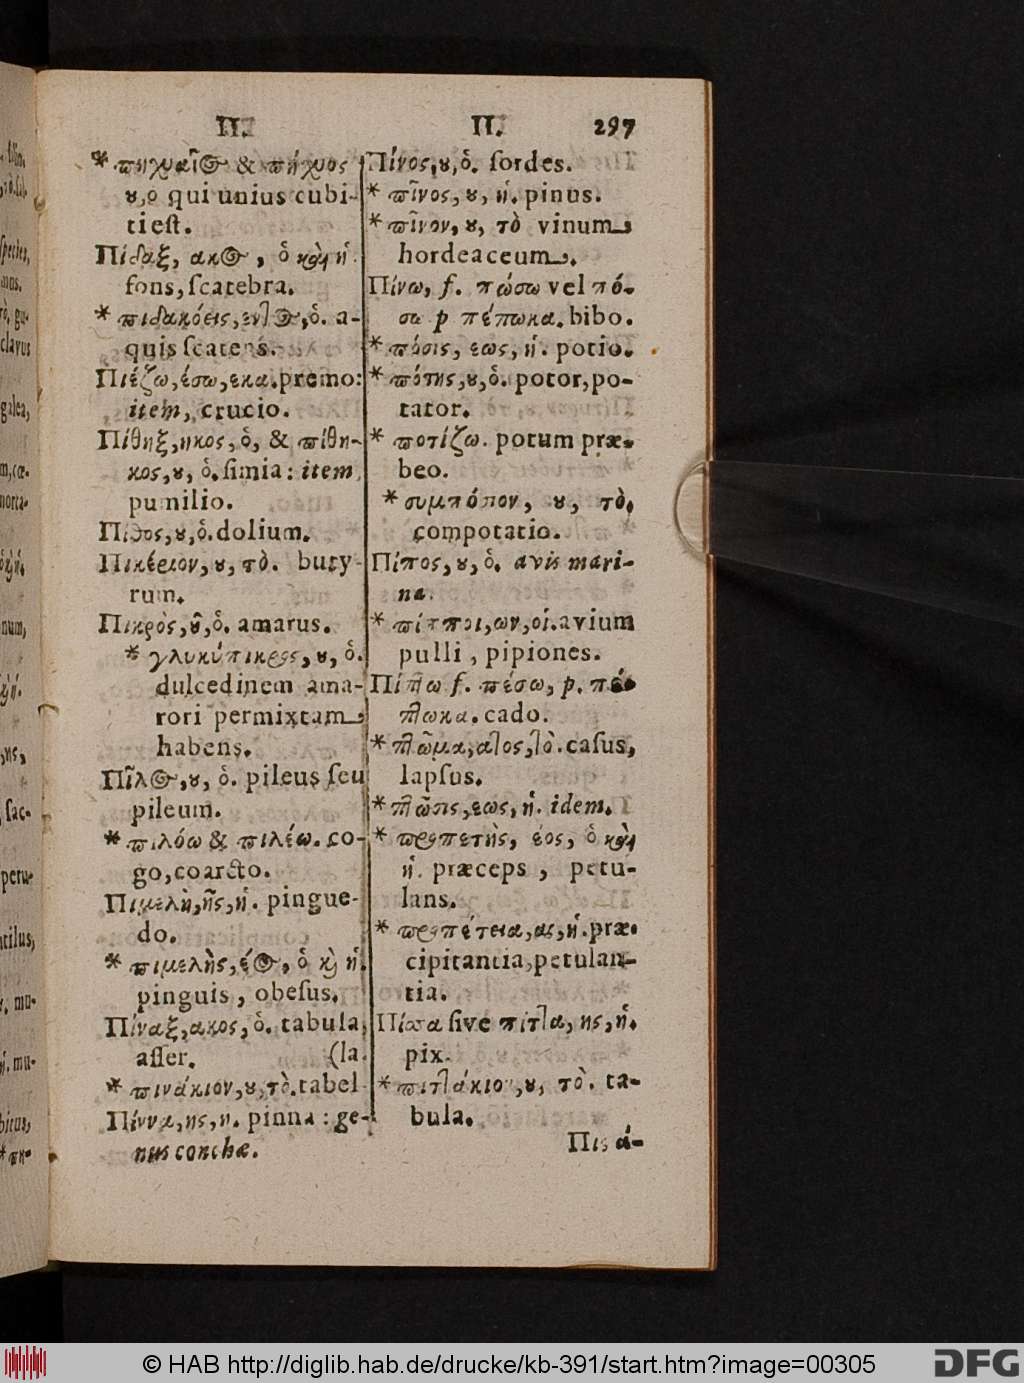 Π.
* πηχυαῖος & πήχυος
ȣ,ο qui unius cubi-
ti eſt.
Πίδαξ, ακος, ὁ καὶ ἡ.
fons, ſcatebra.
* πιδακόεις, εντος, ὁ. a-
quis ſcatens.
Πιέζω, έσω, εκα. premo:
item, crucio.
Πίθηξ, ηκος, ὁ, & πίθη-
κος, ȣ, ὁ. ſimia: item
pumilio.
Πίθος, ȣ, ὁ. dolium.
Πικέριον, ȣ, τὸ. buty-
rum.
Πικρὸς, ȣ͂, ὁ. amarus.
* γλυκύπικρος, ȣ, ὁ.
dulcedinem ama-
rori permixtam
habens.
Πῖλος, ȣ, ὁ. pileus ſeu
pileum.
* πιλόω & πιλέω. co-
go, coarcto.
Πιμελὴ, ῆς, ἡ. pingue-
do.
* πιμελὴς, έος, ὁ κὶ ἡ.
pinguis, obeſus.
Πίναξ, ακος, ὁ. tabula,
aſſer. (la.
* πινάκιον, ȣ, τὸ. tabel
Πίννα, ης, η. pinna: ge-
nus conchæ.
Π. 297
Πίνος, ȣ, ὁ. ſordes.
* πῖνος, ȣ, ἡ. pinus.
* πῖνον, ȣ, τὸ vinum
hordeaceum.
Πίνω, f. πώσω vel πό-
σω p πέπωκα. bibo.
* πόσις, εως, ἡ. potio.
* πότης, ȣ, ὁ. potor, po-
tator.
* ποτίζω. potum præ-
beo.
* συμπόπον, ȣ, τὸ,
compotatio.
Πίπος, ȣ, ὁ. avis mari-
na.
* πίπποι, ων, οἱ. avium
pulli, pipiones.
Πίπτω f. πέσω, p. πέ-
πτωκα. cado.
* πτῶμα, ατος, τὸ. caſus,
lapſus.
* πτῶσις, εως, ἡ. idem.
* προπετὴς, έος, ὁ καὶ
ἡ. præceps, petu-
lans.
* προπέτεια, ας, ἡ. præ-
cipitantia, petulan-
tia.
Πίσσα ſive πίττα, ης, ἡ.
pix.
* πιττάκιον, ȣ, τὸ. ta-
bula.
Πισ ά-
© HAB http://diglib.hab.de/drucke/kb-391/start.htm?image=00305
DFG